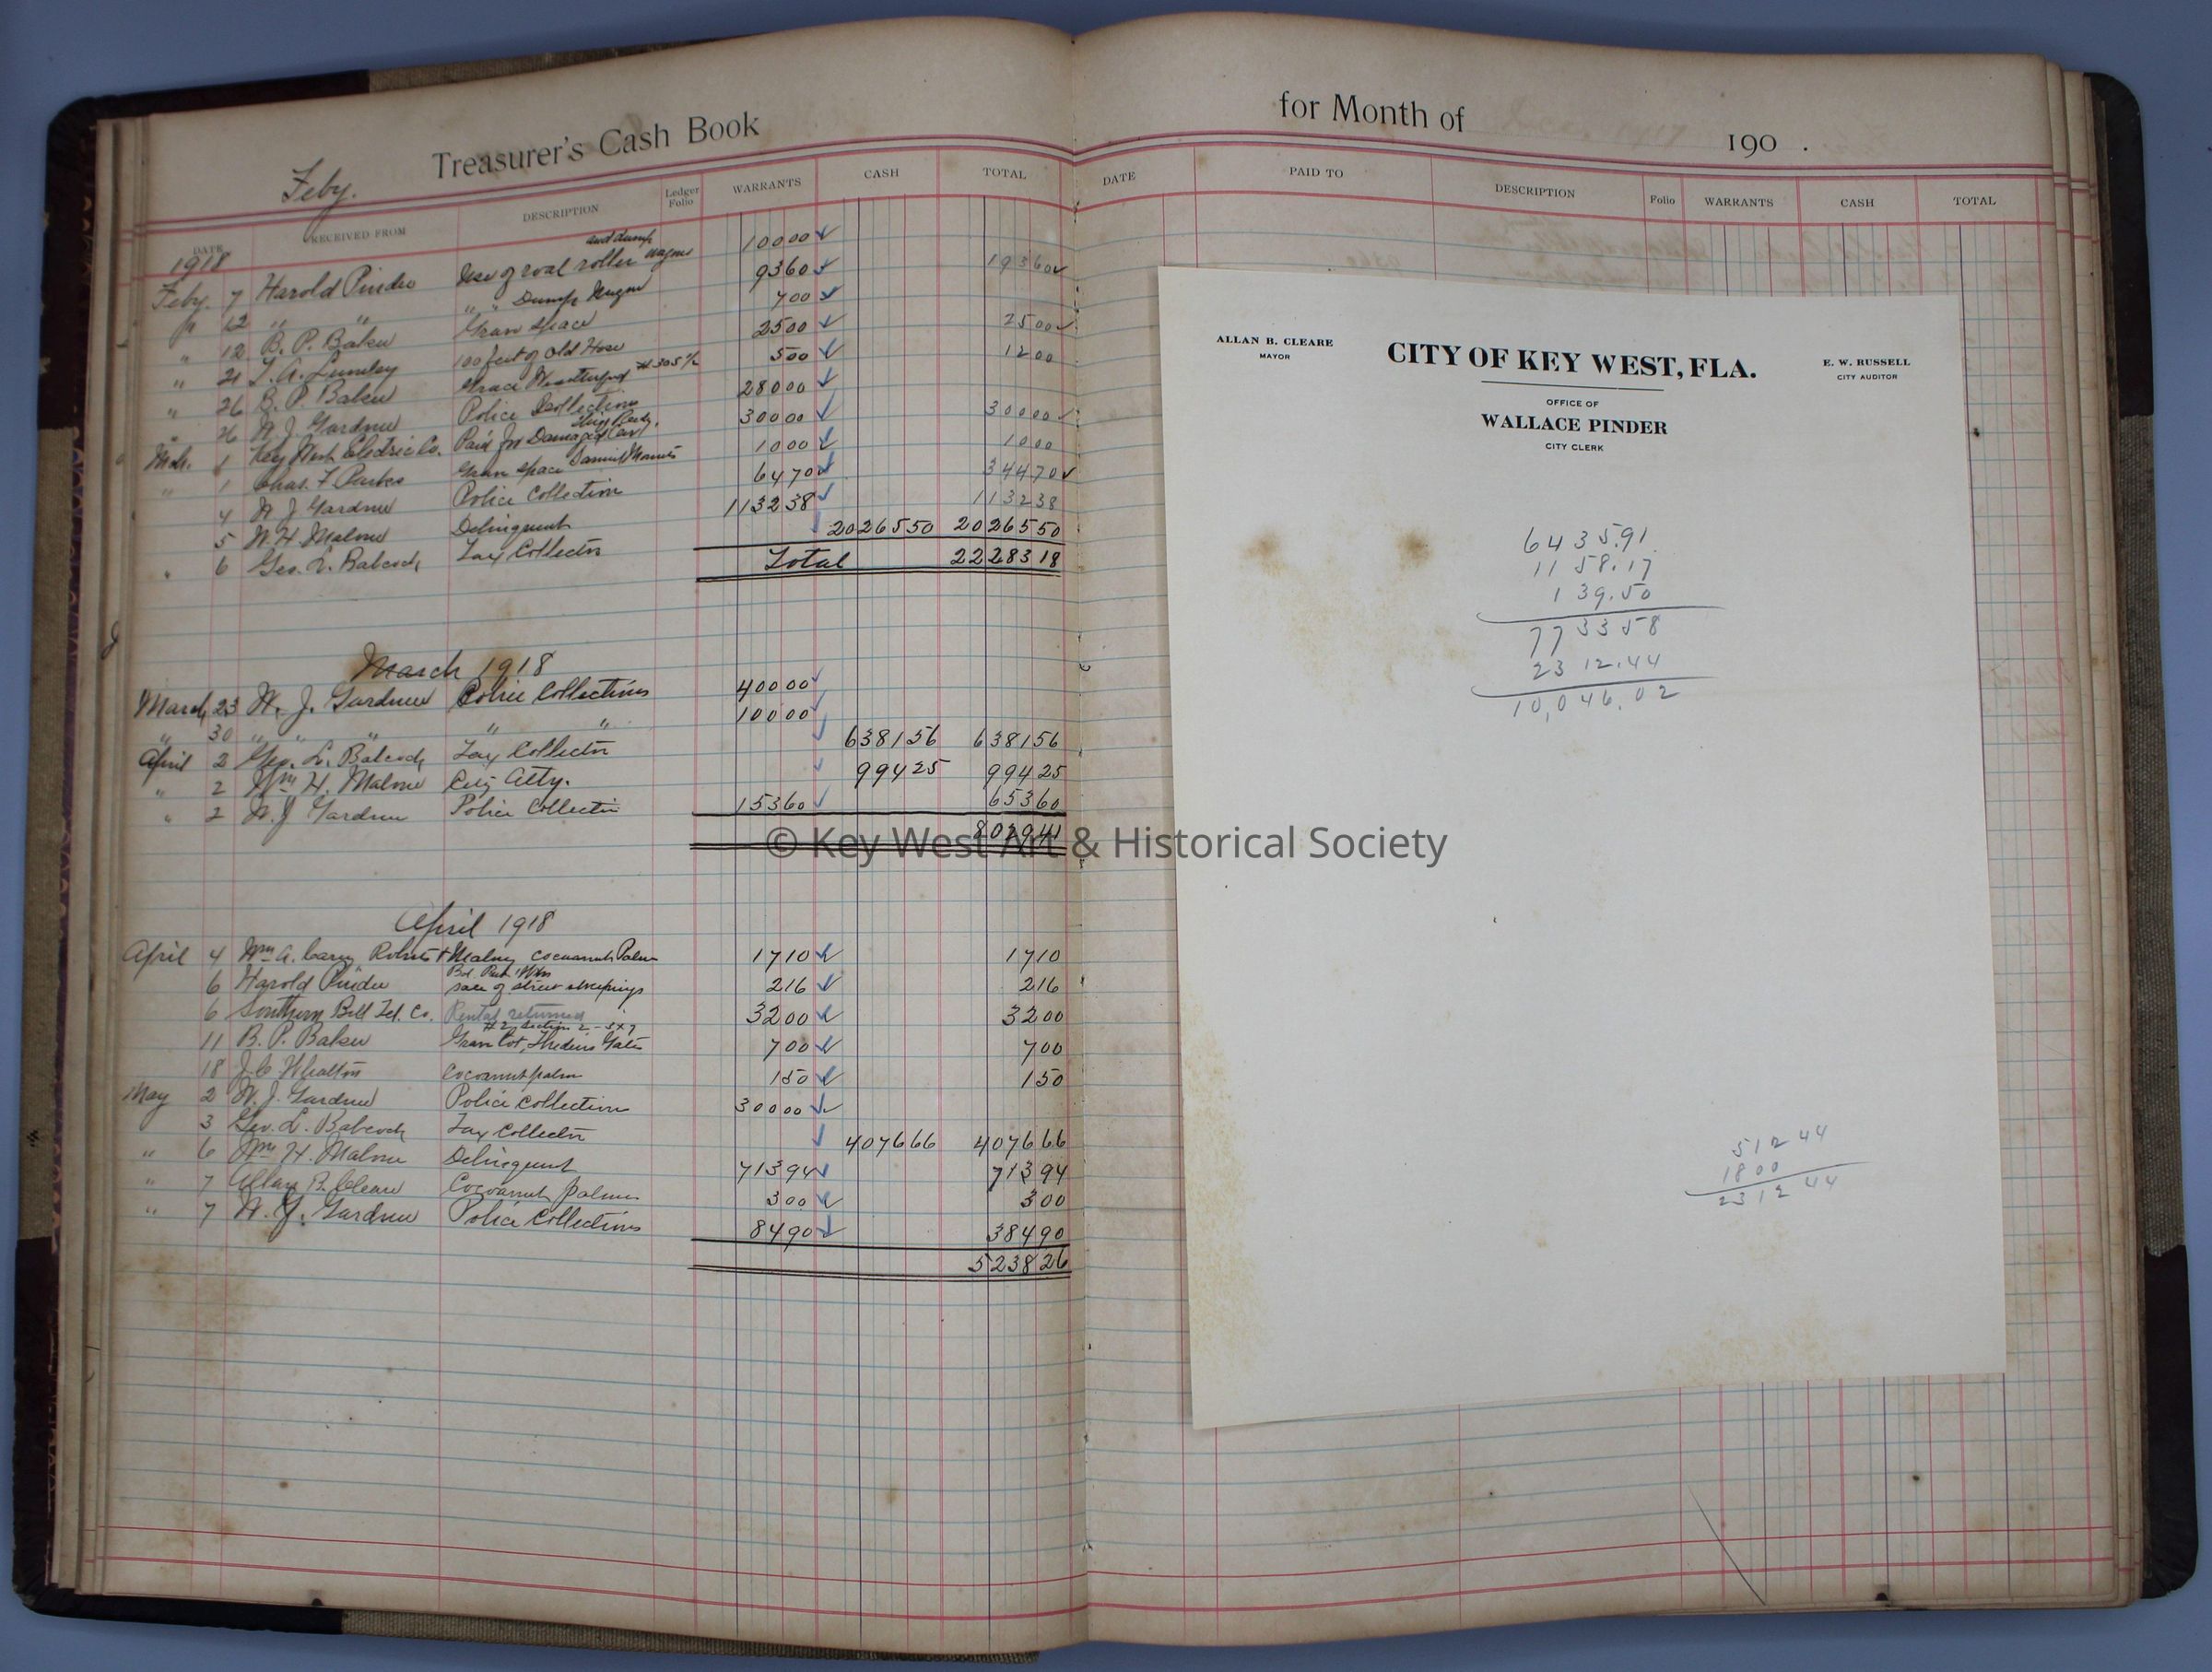 Treasurer's Cash Book
Feby.
DATE RECEIVED FROM DESCRIPTION Ledger Folio WARRANTS CASH TOTAL
1918 and dump
Feby. 7 Harold Pinder Use of road roller wagons 10000
" 12 " " " " Dump Wagon 9360 19360
" 12 B. P. Baker Grave space 700
" 21 100 feet of Old Hose 2500 2500
" 26 B. P. Baker Grave 500 1200
" 26 W. J. Gardner Police Collections 28000
Mch. 1 Key West Electric Co. Paid for Damaged Car 30000 30000
" 1 Chas. F Parks Grave space 1000 1000
4 W J Gardner Police Collection 6470 34470
5 W. H. Malone Delinquent 113238 113238
" 6 Geo. L. Babcock Tax Collector 2026550 2026550
Total 2228318
March 1918
March 23 W. J. Gardner Police Collections 40000
" 30 " " " " " 10000
April 2 Geo. L. Babcock Tax Collector 638156 638156
" 2 Wm H. Malone City Atty. 99425 99425
" 2 W. J Gardner Police Collection 15360 65360
802941
April 1918
April 4 Wm A. Carey Cocoanut Palm 1710 1710
6 Harold Pinder sale of street sweepings 216 216
6 Southern Bell Tel. Co. Rental returned 3200 3200
#2 section 2 - 3x7
11 B. P. Baker Grave Lot, 700 700
18 J C Whalton Cocoanut palm 150 150
May 2 W. J. Gardner Police Collection 30000
3 Geo. L. Babcock Tax Collector 407666 407666
" 6 Wm H. Malone Delinquent 71394 71394
" 7 Allan B. Cleare Cocoanut palms 300 300
" 7 W. J. Gardner Police Collections 8490 38490
523826
for Month of 190 .
DATE PAID TO DESCRIPTION Folio WARRANTS CASH TOTAL
ALLAN B. CLEARE
MAYOR
CITY OF KEY WEST, FLA.
E. W. RUSSELL
CITY AUDITOR
OFFICE OF
WALLACE PINDER
CITY CLERK
6435.91
1158.17
139.50
773358
2312.44
10,046.02
51244
1800
231244
© Key West Art & Historical Society